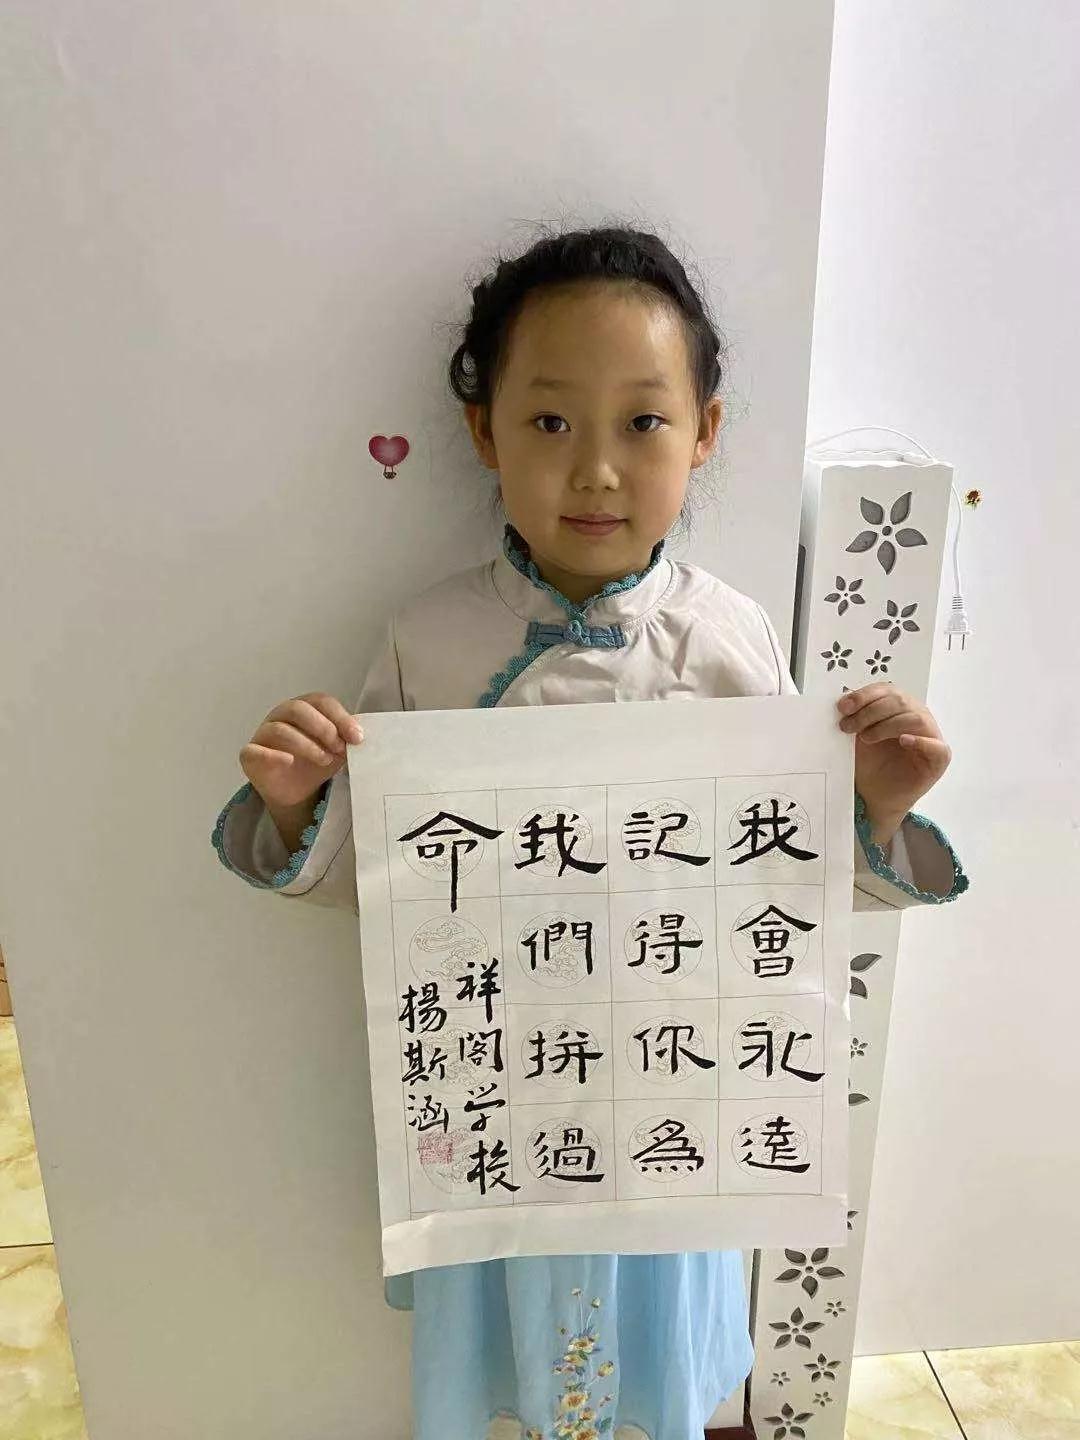 我會永遠
記得你為
我們拼過
命
祥閣学校
楊斯涵